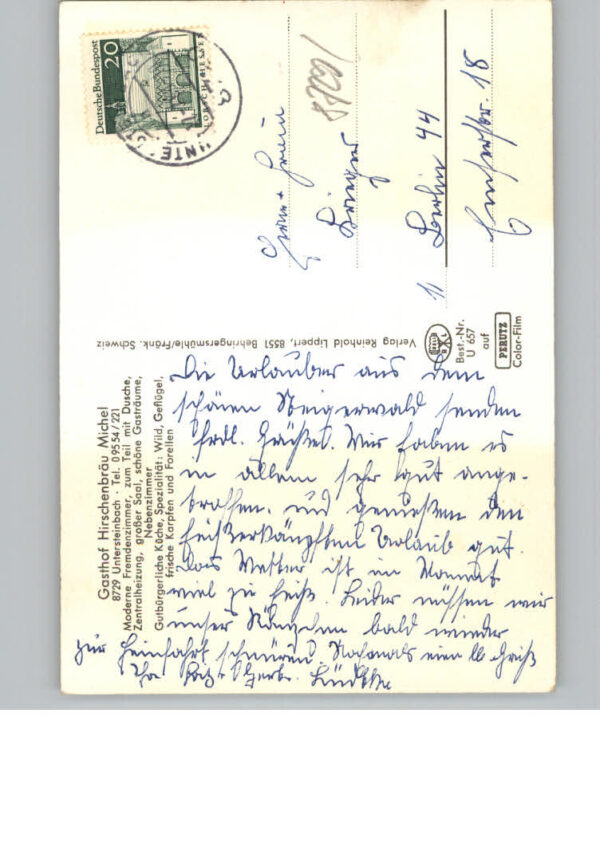 Gasthof Hirschenbräu Michel
8729 Untersteinbach · Tel. 09554/221
Moderne Fremdenzimmer, zum Teil mit Dusche,
Zentralheizung, großer Saal, schöne Gasträume,
Nebenzimmer
Gutbürgerliche Küche, Spezialität: Wild, Geflügel,
frische Karpfen und Forellen
Die Urlauber aus dem
schönen Steigerwald senden
frdl. Grüße. Wir haben es
in allem sehr gut ange-
troffen, und genießen den
heißerkämpften Urlaub gut.
Das Wetter ist im Moment
viel zu heiß. Leider müssen wir
unser Ränzchen bald wieder
zur Heimfahrt schnüren. Nochmals einen lb. Gruß
Ihre
Verlag Reinhold Lippert, 8551 Behringersmühle/Fränk. Schweiz
Best.-Nr.
U 657
auf
PERUTZ
Color-Film
Deutsche Bundespost
20
Herrn + Frau
Krieger
1 Berlin 44
Emserstr. 18